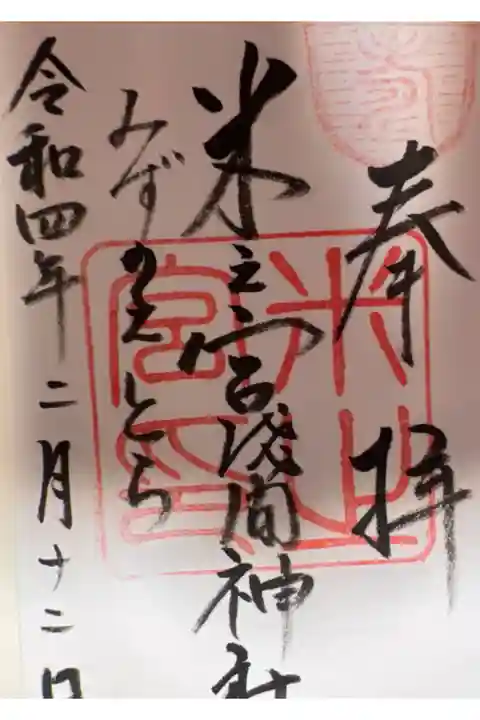 奉拝
米之宮浅間神社
みずのえとら
令和四年二月十二日